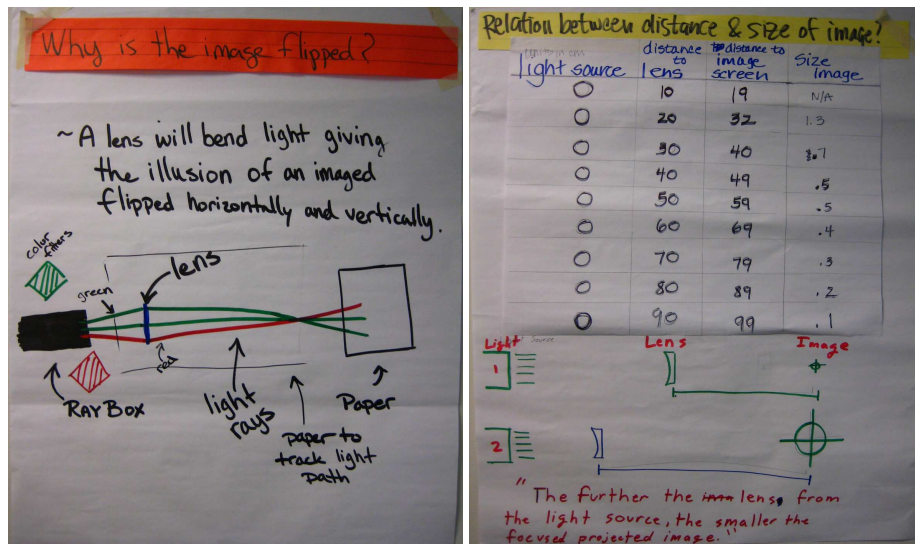 Why is the image flipped?
~ A lens will bend light giving
the illusion of an imaged
flipped horizontally and vertically.
color
filters
green
lens
red
RAY BOX
light
rays
paper to
track light
path
Paper
Relation between distance & size of image?
light source
distance
to
lens
distance to
image
screen
Size
Image
10 19 N/A
20 32 1.3
30 40 .7
40 49 .5
50 59 .5
60 69 .4
70 79 .3
80 89 .2
90 99 .1
Light Lens Image
1
2
"The further the lens, from
the light source, the smaller the
focused projected image."